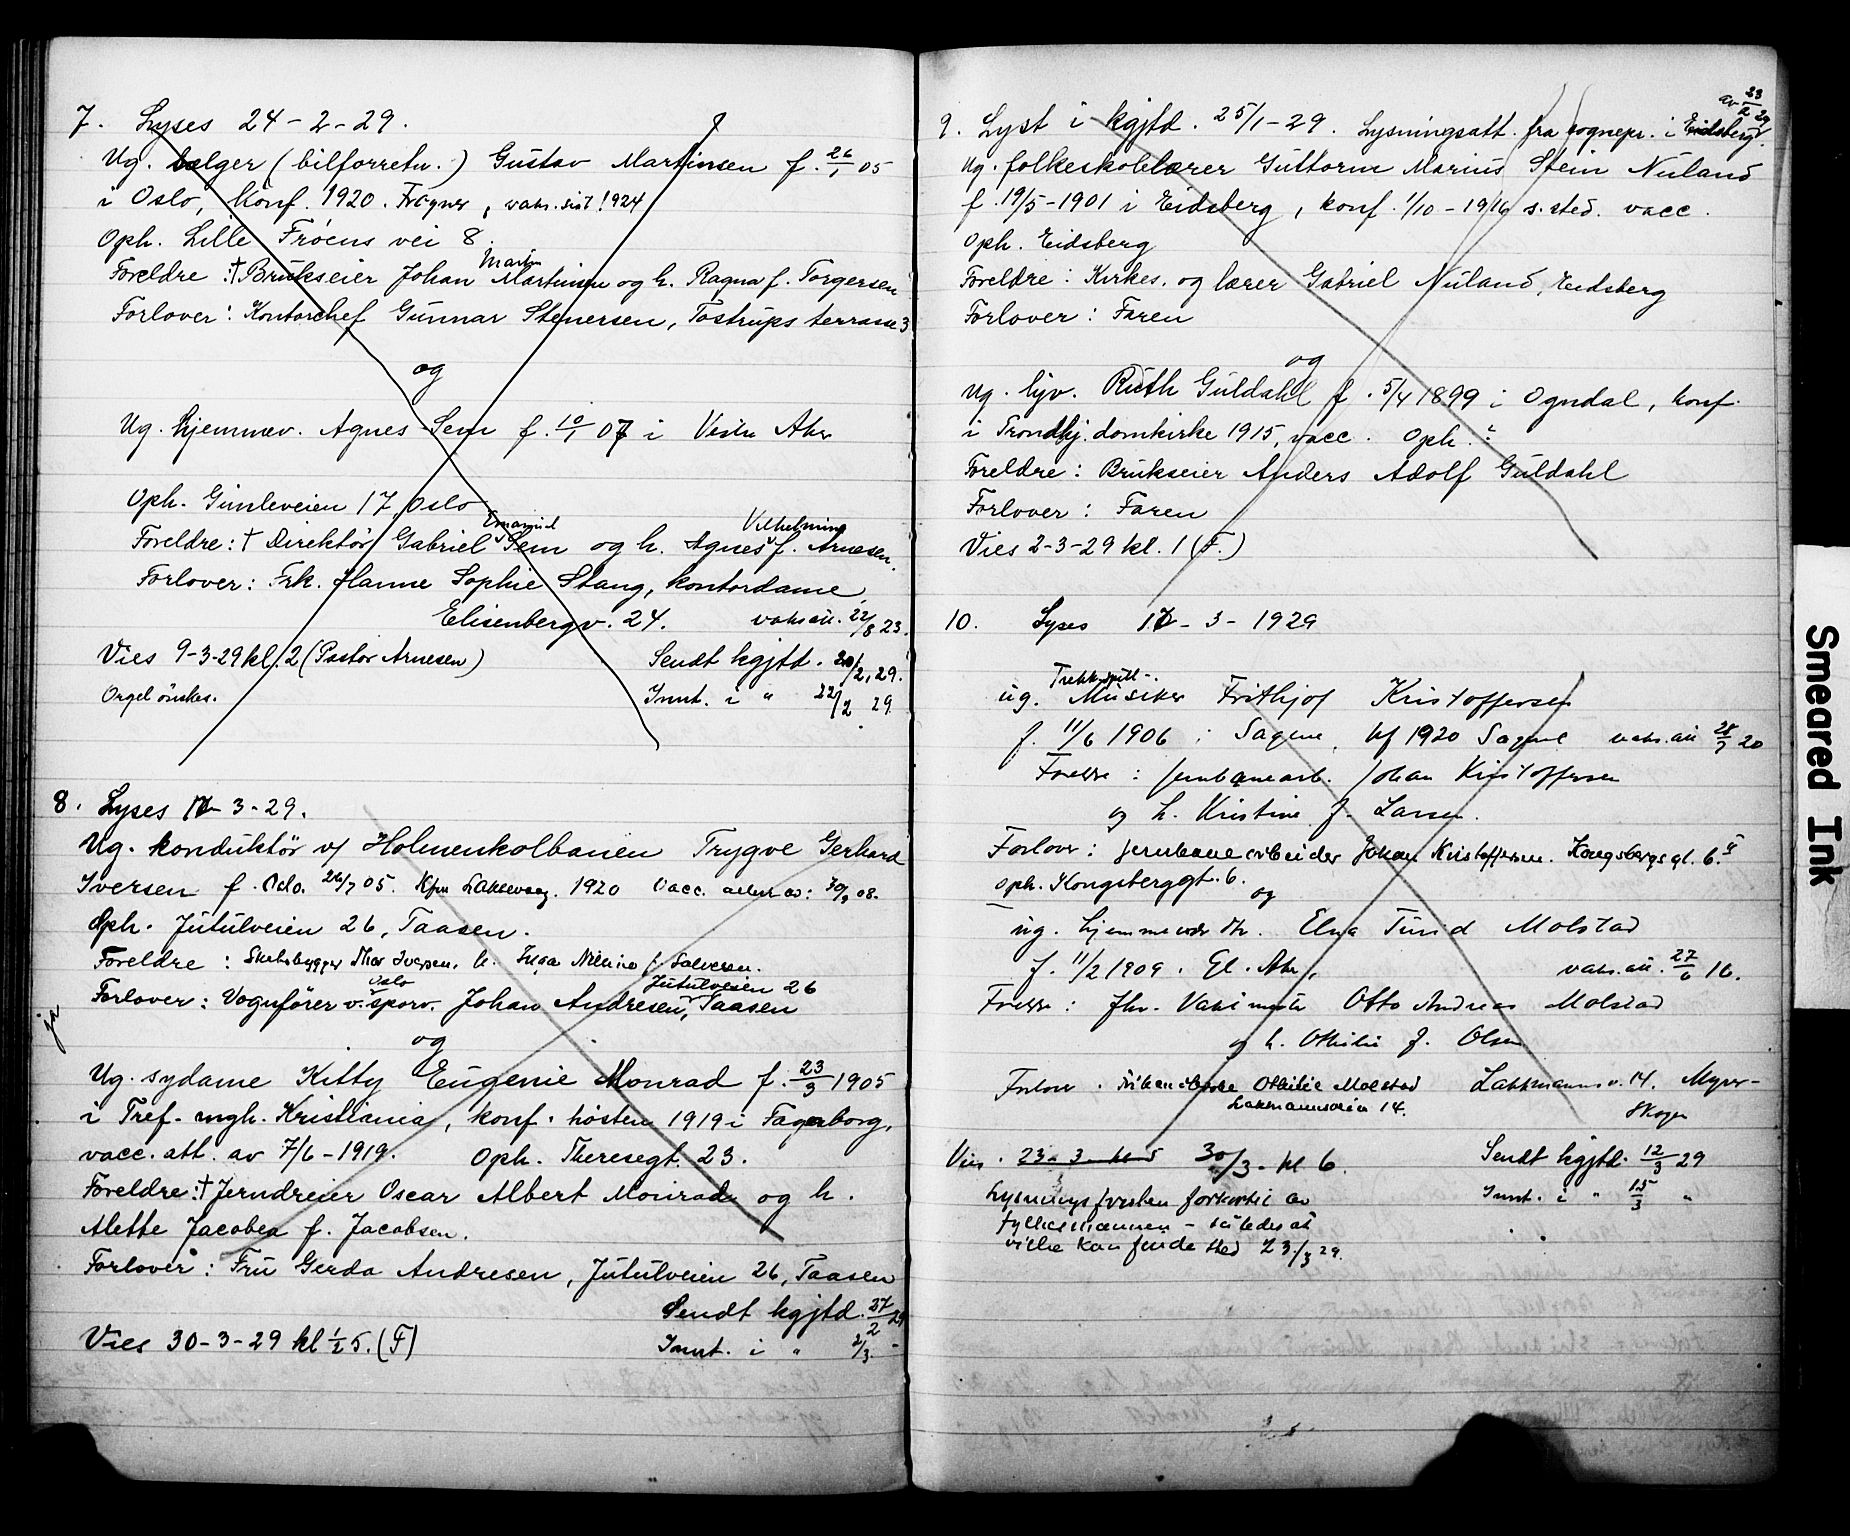 7. Lyses 24-2-29.
Ug. selger (bilforretn.) Gustav Martinsen f. 26/1 05
i Oslo, konf. 1920. Frogner, vaks.sist 1924
Oph. Lille Frøens vei 8.
Foreldre: † Brukseier Johan Martin Martinsen og h. Ragna f. Torgersen
Forlover: Kontorchef Gunnar Stenersen, Tostrups terrasse 3
og
Ug. hjemmev. Agnes Sem f. 10/1 07 i Vestre Aker
Oph. Gimleveien 17, Oslo
Foreldre: † Direktør Gabriel Emanuel Sem og h. Agnes Vilhelmine f. Arnesen.
Forlover: Frk. Hanne Sophie Stang, kontordame,
Elisenbergv. 24. vaks.att. 22/8 23.
Vies 9-3-29 kl. 2 (Pastor Arnesen) Sendt kgjtd. 20/2, 29.
Orgel ønskes. Innt. i " 22/2 29
8. Lyses 17-3-29.
Ug. konduktør v/ Holmenkolbanen Trygve Gerhard
Iversen f. Oslo. 26/7 05. Kfm 1920 Vacc. 08.
Oph. Jutulveien 26, Taasen.
Foreldre: Skibsbygger Thor Iversen. h. Inga f. Salvesen.
Forlover: Vognfører v. Oslo sporv. Johan Andresen, Jutulveien 26 Taasen
ja
og
Ug. sydame Kitty Eugenie Monrad f. 23/3 1905
i Tref. mgh. Kristiania, konf. høsten 1919 i Fagerborg,
vacc. att. av 7/6-1919. Oph. Theresegt. 23.
Foreldre: † Jerndreier Oscar Albert Monrad og h.
Alette Jacobea f. Jacobsen.
Forlover: Fru Gerda Andresen, Jutulveien 26, Taasen
Sendt kgjtd. 27/2 29
Vies 30-3-29 kl ½5. (F) Innt. i " 2/3. -
9. Lyst i kgjtd. 25/1-29. Lysningsatt. fra sognepr. i Eidsberg av 23/2 29
Ug. folkeskolelærer Guttorm Marius Stein Nuland
f. 19/5-1901 i Eidsberg, konf. 1/10-1916 s. sted. vacc.
Oph. Eidsberg
Foreldre: Kirkes. og lærer Gabriel Nuland, Eidsberg
Forlover: Faren
og
Ug. hjv. Ruth Guldahl f. 5/4 1899 i Ogndal, konf.
i Trondhj. domkirke 1915, vacc. Oph. ?
Foreldre: Brukseier Anders Adolf Guldahl
Forlover: Faren
Vies 2-3-29 kl. 1 (F.)
10. Lyses 17-3-1929
ug. Trekkspill-Musiker Frithjof Kristoffersen
f. 11/6 1906 i Sagene, kf 1920 Sagene vaks.att 20
Foreldre: jernbanearb. Johan Kristoffersen
og h. Kristine f. Larsen.
Forlover: jernbanearbeider Johan Kristoffersen. Kongsbergsgt. 6. II
Oph. Kongsberggt. 6. og
ug. hjemmevær. Elna Turid Molstad
f. 11/2 1909. Gl. Aker, vaks.att. 27/6 16.
Foreldre: fhv. Otto Andreas Molstad
og h. Othilie f. Olsen
Forlover. Othilie Molstad Lakkmannsv. 14. Myrer-
Lakkmannsveien 14. skogen
Vies. 23-3-kl 5 30/3-kl 6. Sendt kgjtd. 12/3 29
Lysningsfristen forkortet av Innt. i " 15/3 "
fylkesmannen - således at
vielse kan finde sted 23/3 29.
Smeared Ink